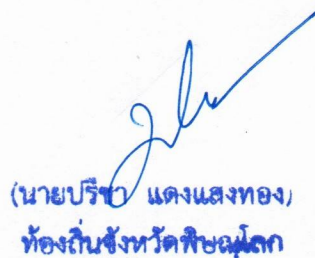 (นายปรีชา แดงแสงทอง)
ท้องถิ่นจังหวัดพิษณุโลก